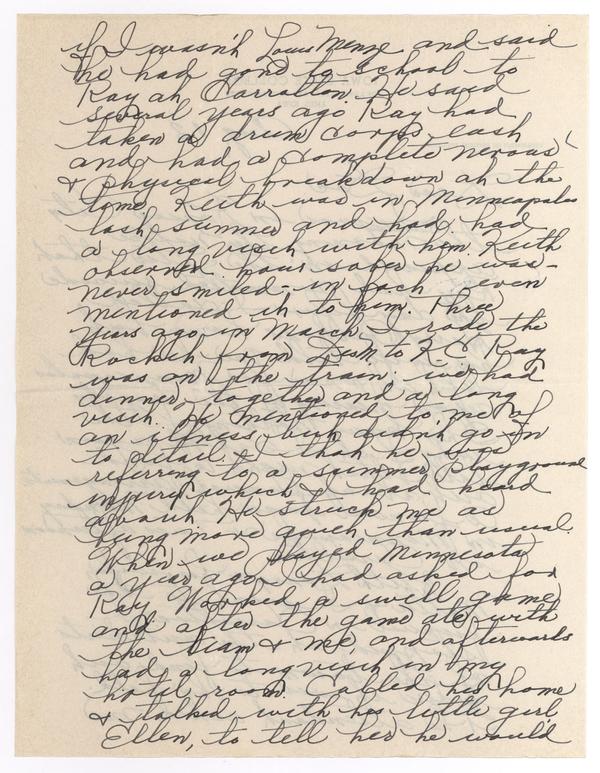 if I wasn't Louis Menze and said
he had gone to school to
Ray at Carrollton. He said
several years ago Ray had
taken a drum corps east
and had a complete nervous
& physical breakdown at the
time. Keith was in Minneapolis
last summer and had had
a long visit with him. Keith
observed how sober he was -
never smiled - in fact even
mentioned it to him. Three
years ago in March I rode the
Rocket from DesM. to K.C. Ray
was on the train. we had
dinner together and a long
visit. He mentioned to me of
an illness but didn't go in
to detail & that he was
referring to a summer playground
injury which I had heard
about. He struck me as
being more quiet than usual.
When we played Minnesota
a year ago I had asked for
Ray. Worked a swell game
and after the game ate with
the team & me and afterwards
had a long visit in my
hotel room. Called his home
& talked with his little girl
Ellen, to tell her he would